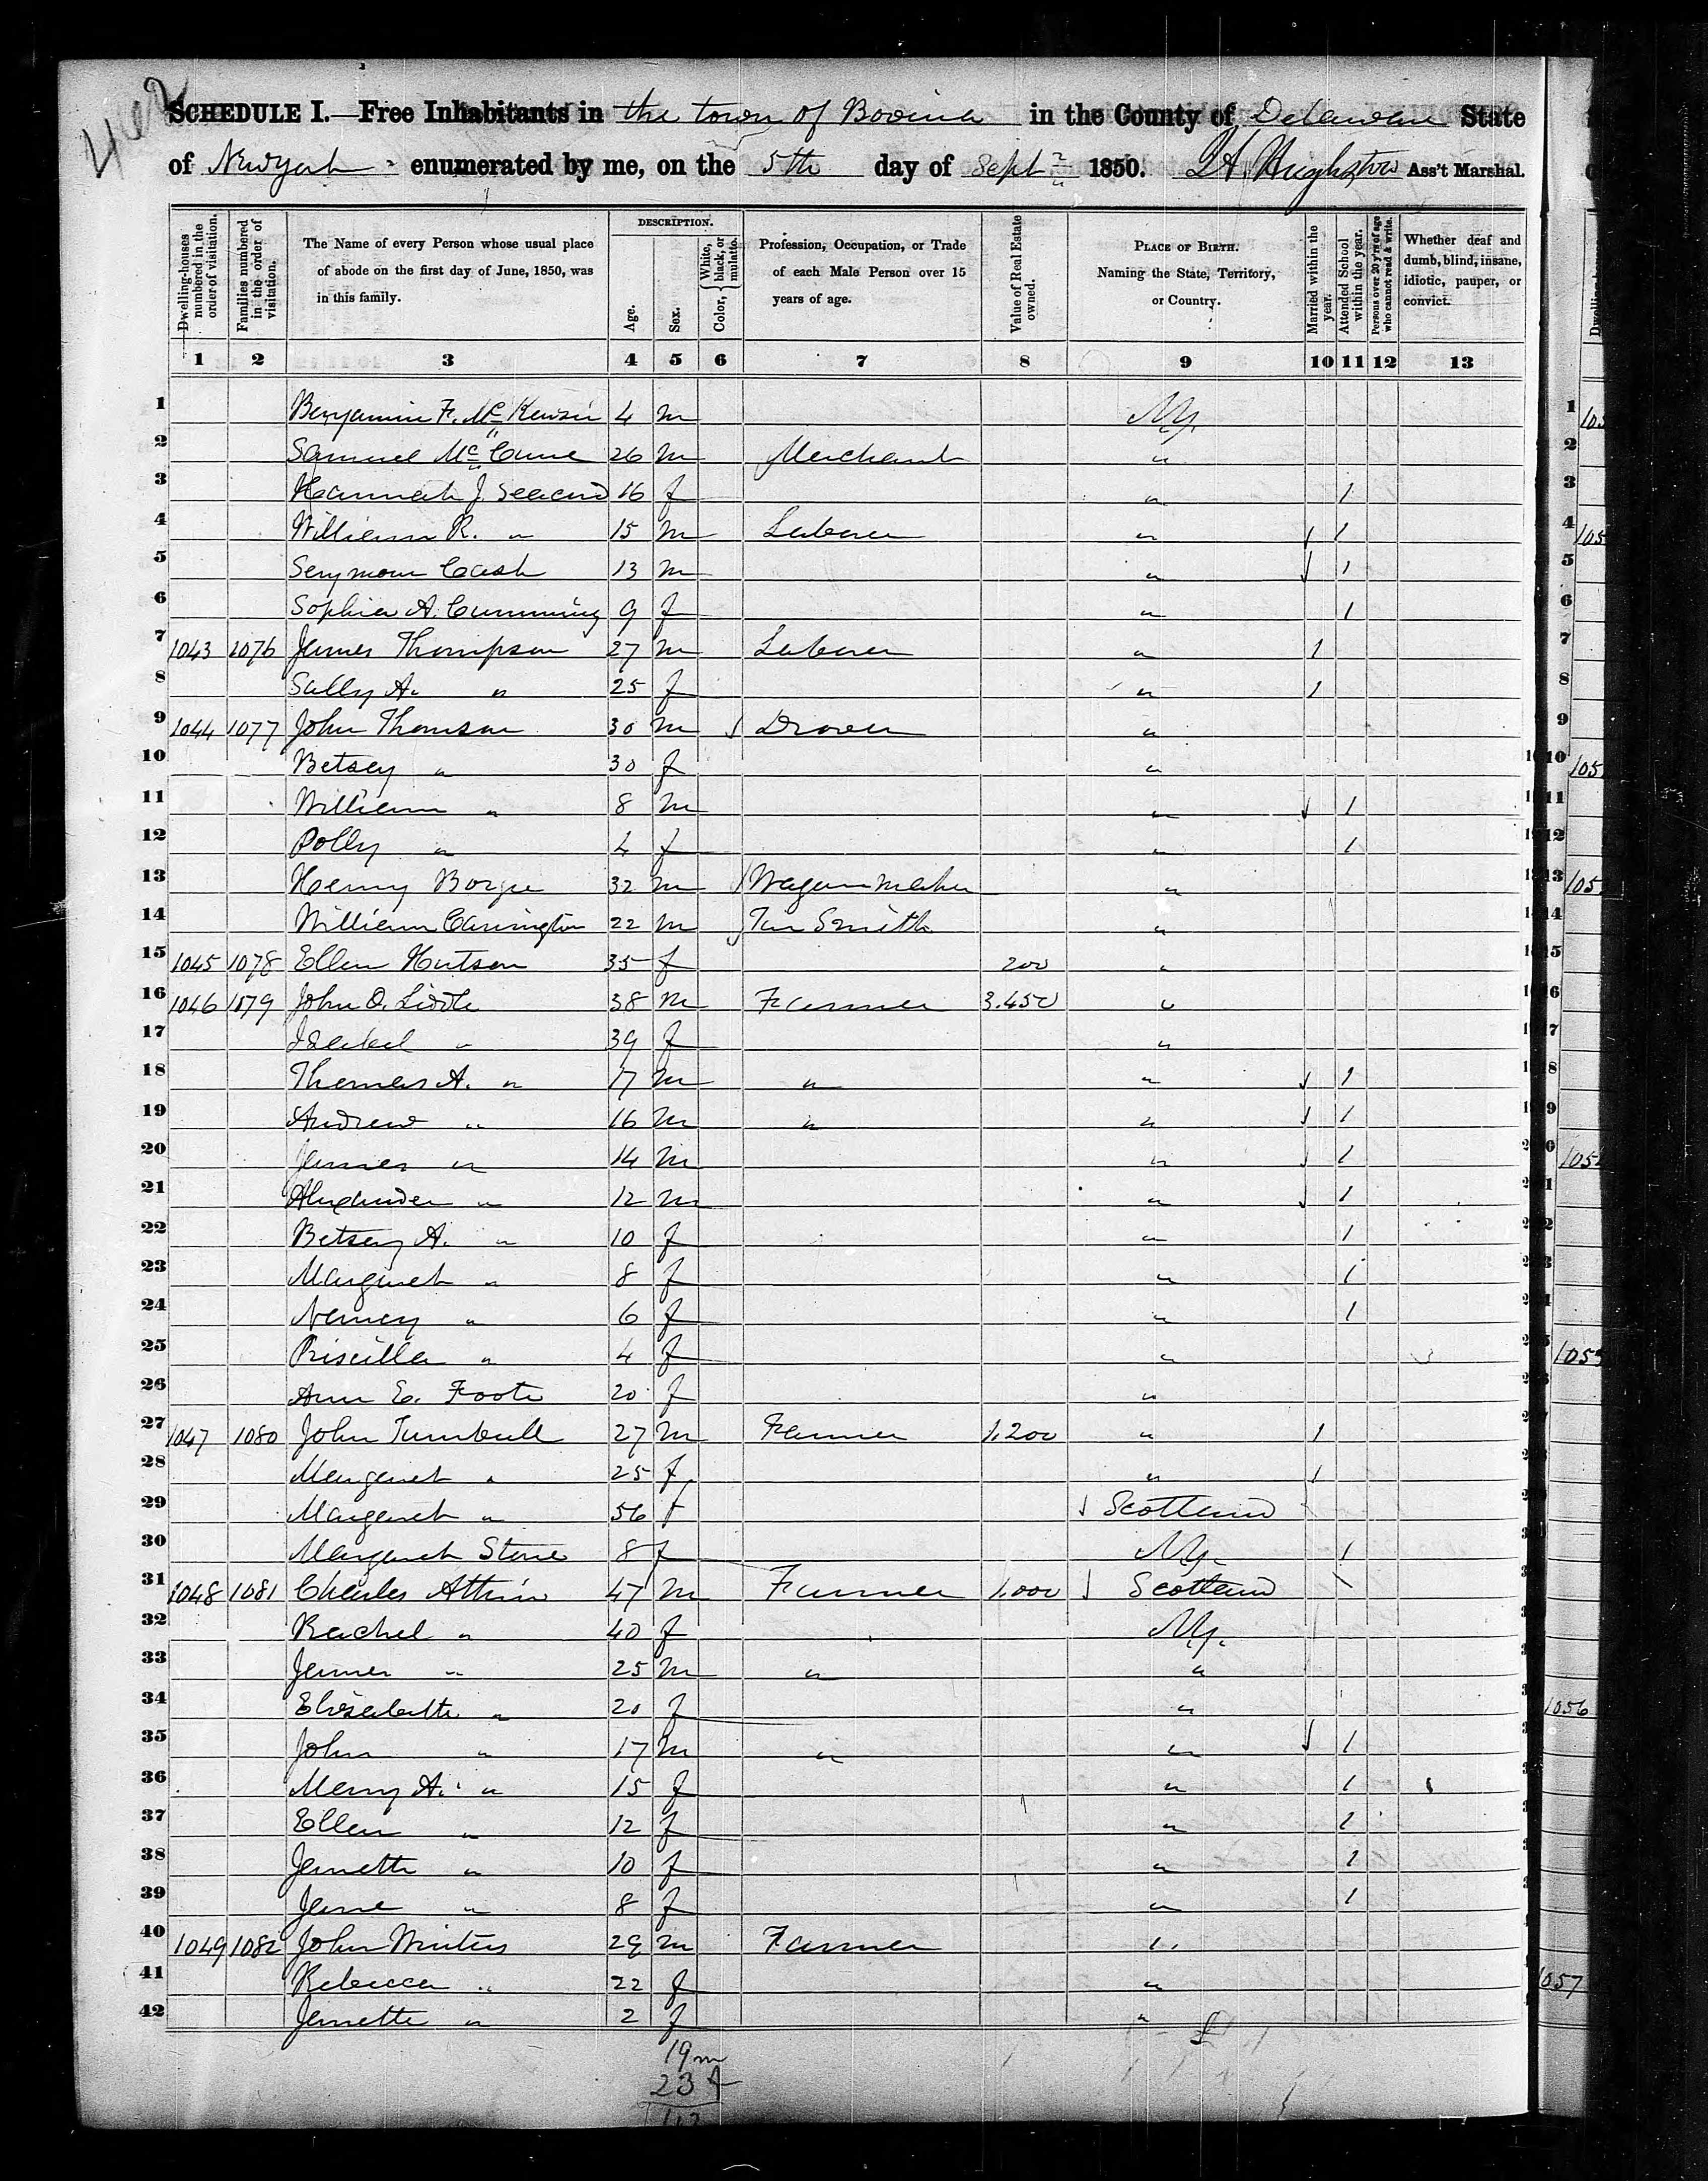 SCHEDULE I.—Free Inhabitants in the town of Bovina in the County of Delaware State
of New York enumerated by me, on the 5th day of Sept 1850. Ass't Marshal.
Dwelling-houses numbered in the order of visitation.
Families numbered in the order of visitation.
The Name of every Person whose usual place of abode on the first day of June, 1850, was in this family.
DESCRIPTION.
Age.
Sex.
Color, White, black, or mulatto.
Profession, Occupation, or Trade of each Male Person over 15 years of age.
Value of Real Estate owned.
PLACE OF BIRTH. Naming the State, Territory, or Country.
Married within the year.
Attended School within the year.
Persons over 20 y'rs of age who cannot read & write.
Whether deaf and dumb, blind, insane, idiotic, pauper, or convict.
1 2 3 4 5 6 7 8 9 10 11 12 13
1 Benjamin F. Mc 4 m NY.
2 Samuel McCune 26 m Merchant "
3 Hannah J. 16 f " 1
4 William R. " 15 m Laborer " 1
5 Seymour Cash 13 m " 1
6 Sophia A. Cumming 9 f " 1
7 1043 1076 James Thompson 27 m Laborer " 1
8 Sally A. " 25 f " 1
9 1044 1077 John Thomson 30 m Drover "
10 Betsey " 30 f "
11 William " 8 m " 1
12 Polly " 4 f " 1
13 Henry 32 m Wagon maker "
14 William Carrington 22 m Tin Smith "
15 1045 1078 Ellen Hutson 35 f 200 "
16 1046 1079 John O. Liddle 38 m Farmer 3.450 "
17 Isabel " 39 f "
18 Thomas A. " 17 m " " 1
19 Andrew " 16 m " " 1
20 James " 14 m " 1
21 Alexander " 12 m " 1
22 Betsey A. " 10 f " 1
23 Margaret " 8 f " 1
24 Nancy " 6 f " 1
25 Priscilla " 4 f "
26 Ann E. Foote 20 f "
27 1047 1080 John Turnbull 27 m Farmer 1,200 " 1
28 Margaret " 25 f " 1
29 Margaret " 56 f Scotland
30 Margaret Stone 8 f NY. 1
31 1048 1081 Charles Atkin 47 m Farmer 1,000 Scotland
32 Rachel " 40 f NY.
33 James " 25 m " "
34 Elisabeth " 20 f "
35 John " 17 m " " 1
36 Mary A. " 15 f " 1
37 Ellen " 12 f " 1
38 Jennette " 10 f " 1
39 Jane " 8 f " 1
40 1049 1082 John Winters 29 m Farmer "
41 Rebecca " 22 f "
42 Jennette " 2 f "
19 m
23 f